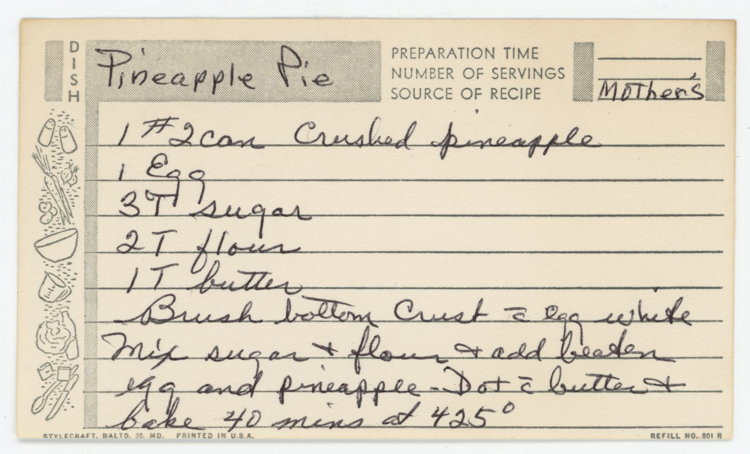 DISH
Pineapple Pie
PREPARATION TIME
NUMBER OF SERVINGS
SOURCE OF RECIPE Mother's
1 #2 can Crushed pineapple
1 Egg
3T sugar
2T flour
1T butter
Brush bottom Crust c̄ egg white
Mix sugar + flour + add beaten
egg and pineapple - Dot c̄ butter +
bake 40 mins at 425°
STYLECRAFT, BALTO. 20, MD. PRINTED IN U.S.A.
REFILL NO. 801 R